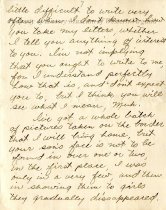 little difficult to write very
often when I don't know how
you take my letters, whether
I tell you anything of interest
to you. I'm not implying
that you ought to write to me
for I understand perfectly
how that is, and don't expect
you to, but I think you will
see what I mean, Mum.
I've got a whole batch
of pictures taken on the border
that I will bring home, but
your son's face is not to be
found in over one or two
in the first place. I was
only in a very few, and then
in showing them to girls
they gradually disappeared